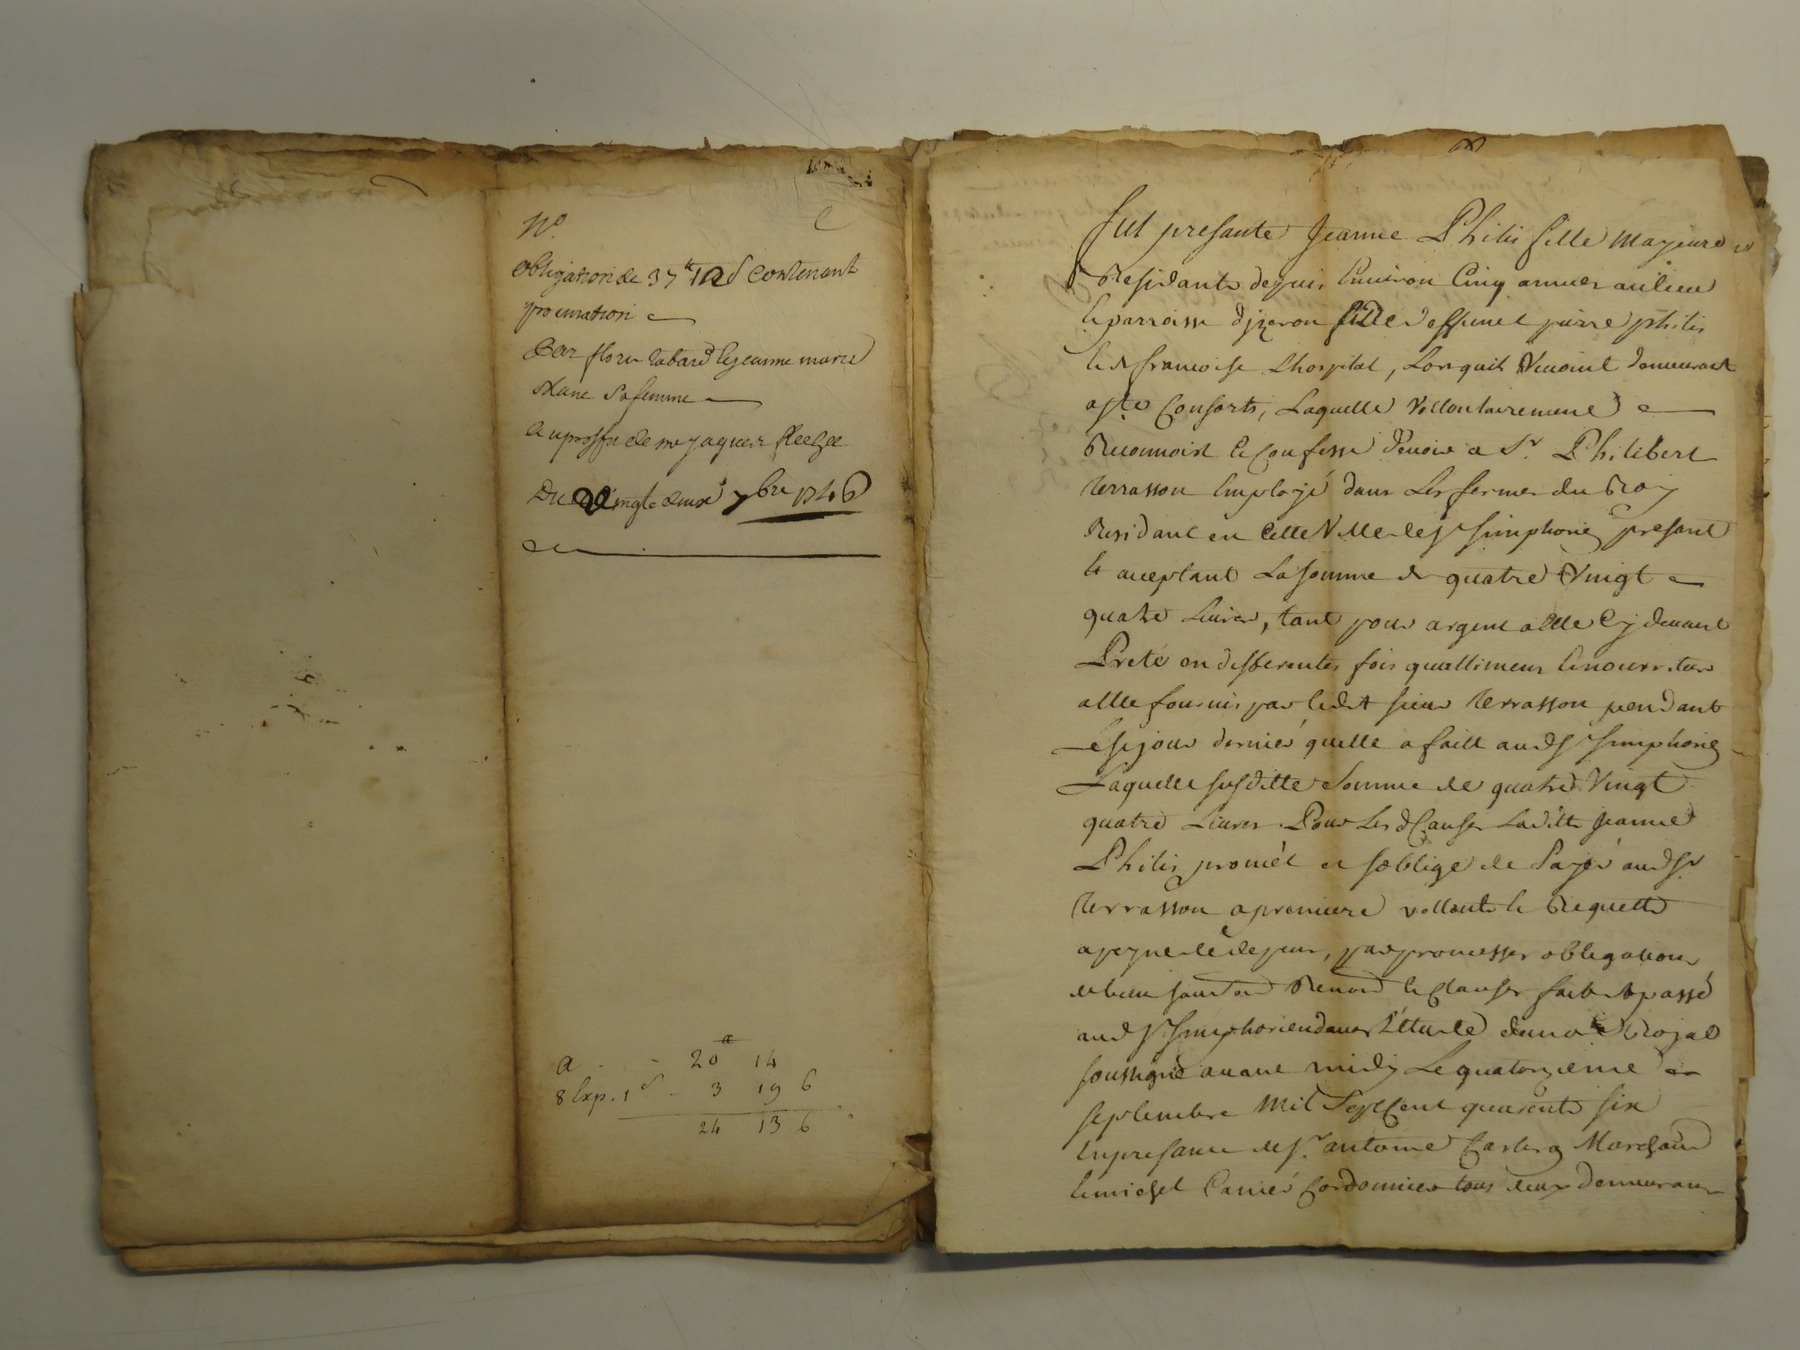 N.o
obligation de 37 tt 10 s contenant
procuration
Par fleury tabard et jeanne marie
sa femme
au proffit de me jaques
Du vingt deux 7bre 1746
a 20 14
8 Exp. 1 s 3 19 6
24 13 6
fut presante Jeanne Philis fille majeure
Residante depuis Environ Cinq années au lieu
et parroisse d'jzeron fille a deffunct pierre philis
et de francoise Lhospital, Lors quil vivoint demeurant
Conforts, Laquelle vollontairement
Reconnoist et Confesse devoir a Sr. Philibert
terrasson Employé dans Les fermes du Roy
Residant en Cette Ville de St Simphorien presant
et aceptant La somme de quatre Vingt
quatre Livres, tant pour argent a Elle Cy devant
Preté en differentes fois qu'allimens et nourriture
a Elle fournis par ledit sieur terrasson pendant
Le sejour dernier quelle a faitt aud St Simphorien
Laquelle susditte somme de quatre Vingt
quatre Livres Pour Les d Causes Laditte Jeanne
Philis promet et s'oblige de Payer aud Sr
terrasson a premiere vollonté et Requette
a peyne de depens, par promesses obligations
de biens soumission Renon et Clauses fait et passé
aud St Simphorien dans L'étude du nore Royal
soussigné avant midy Le quatorzieme
septembre Mil Sept Cent quarante six
En presance de Sr. antoine Marchand
et michel Cordonnier tous deux demeurant